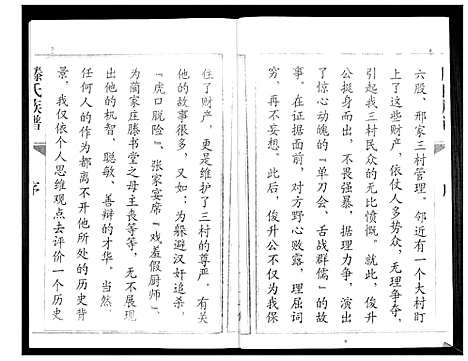 六股、邢家三村管理。邻近有一个大村盯
上了这些财产，依仗人多势众，无理争夺，
引起我三村民众的无比愤慨。就此，俊升
公挺身而出，不畏强暴，据理力争，演出
了惊心动魄的「单刀会、舌战群儒」的故
事。在证据面前，对方野心败露，理屈词
穷，再不妄想。此后，俊升公不仅为我保
住了财产，更是维护了三村的尊严。有关
他的故事很多，又如：为躲避汉奸追杀，
「虎口脱险」，张家宴席「戏羞假厨师」，
为蔺家庄滕书堂之母主丧等等，无不展现
出他的机智、聪敏、善辩的才华。当然，
任何人的作为都离不开他所处的历史背
景。我仅依个人思维观点去评价一个历史
滕氏族谱
序